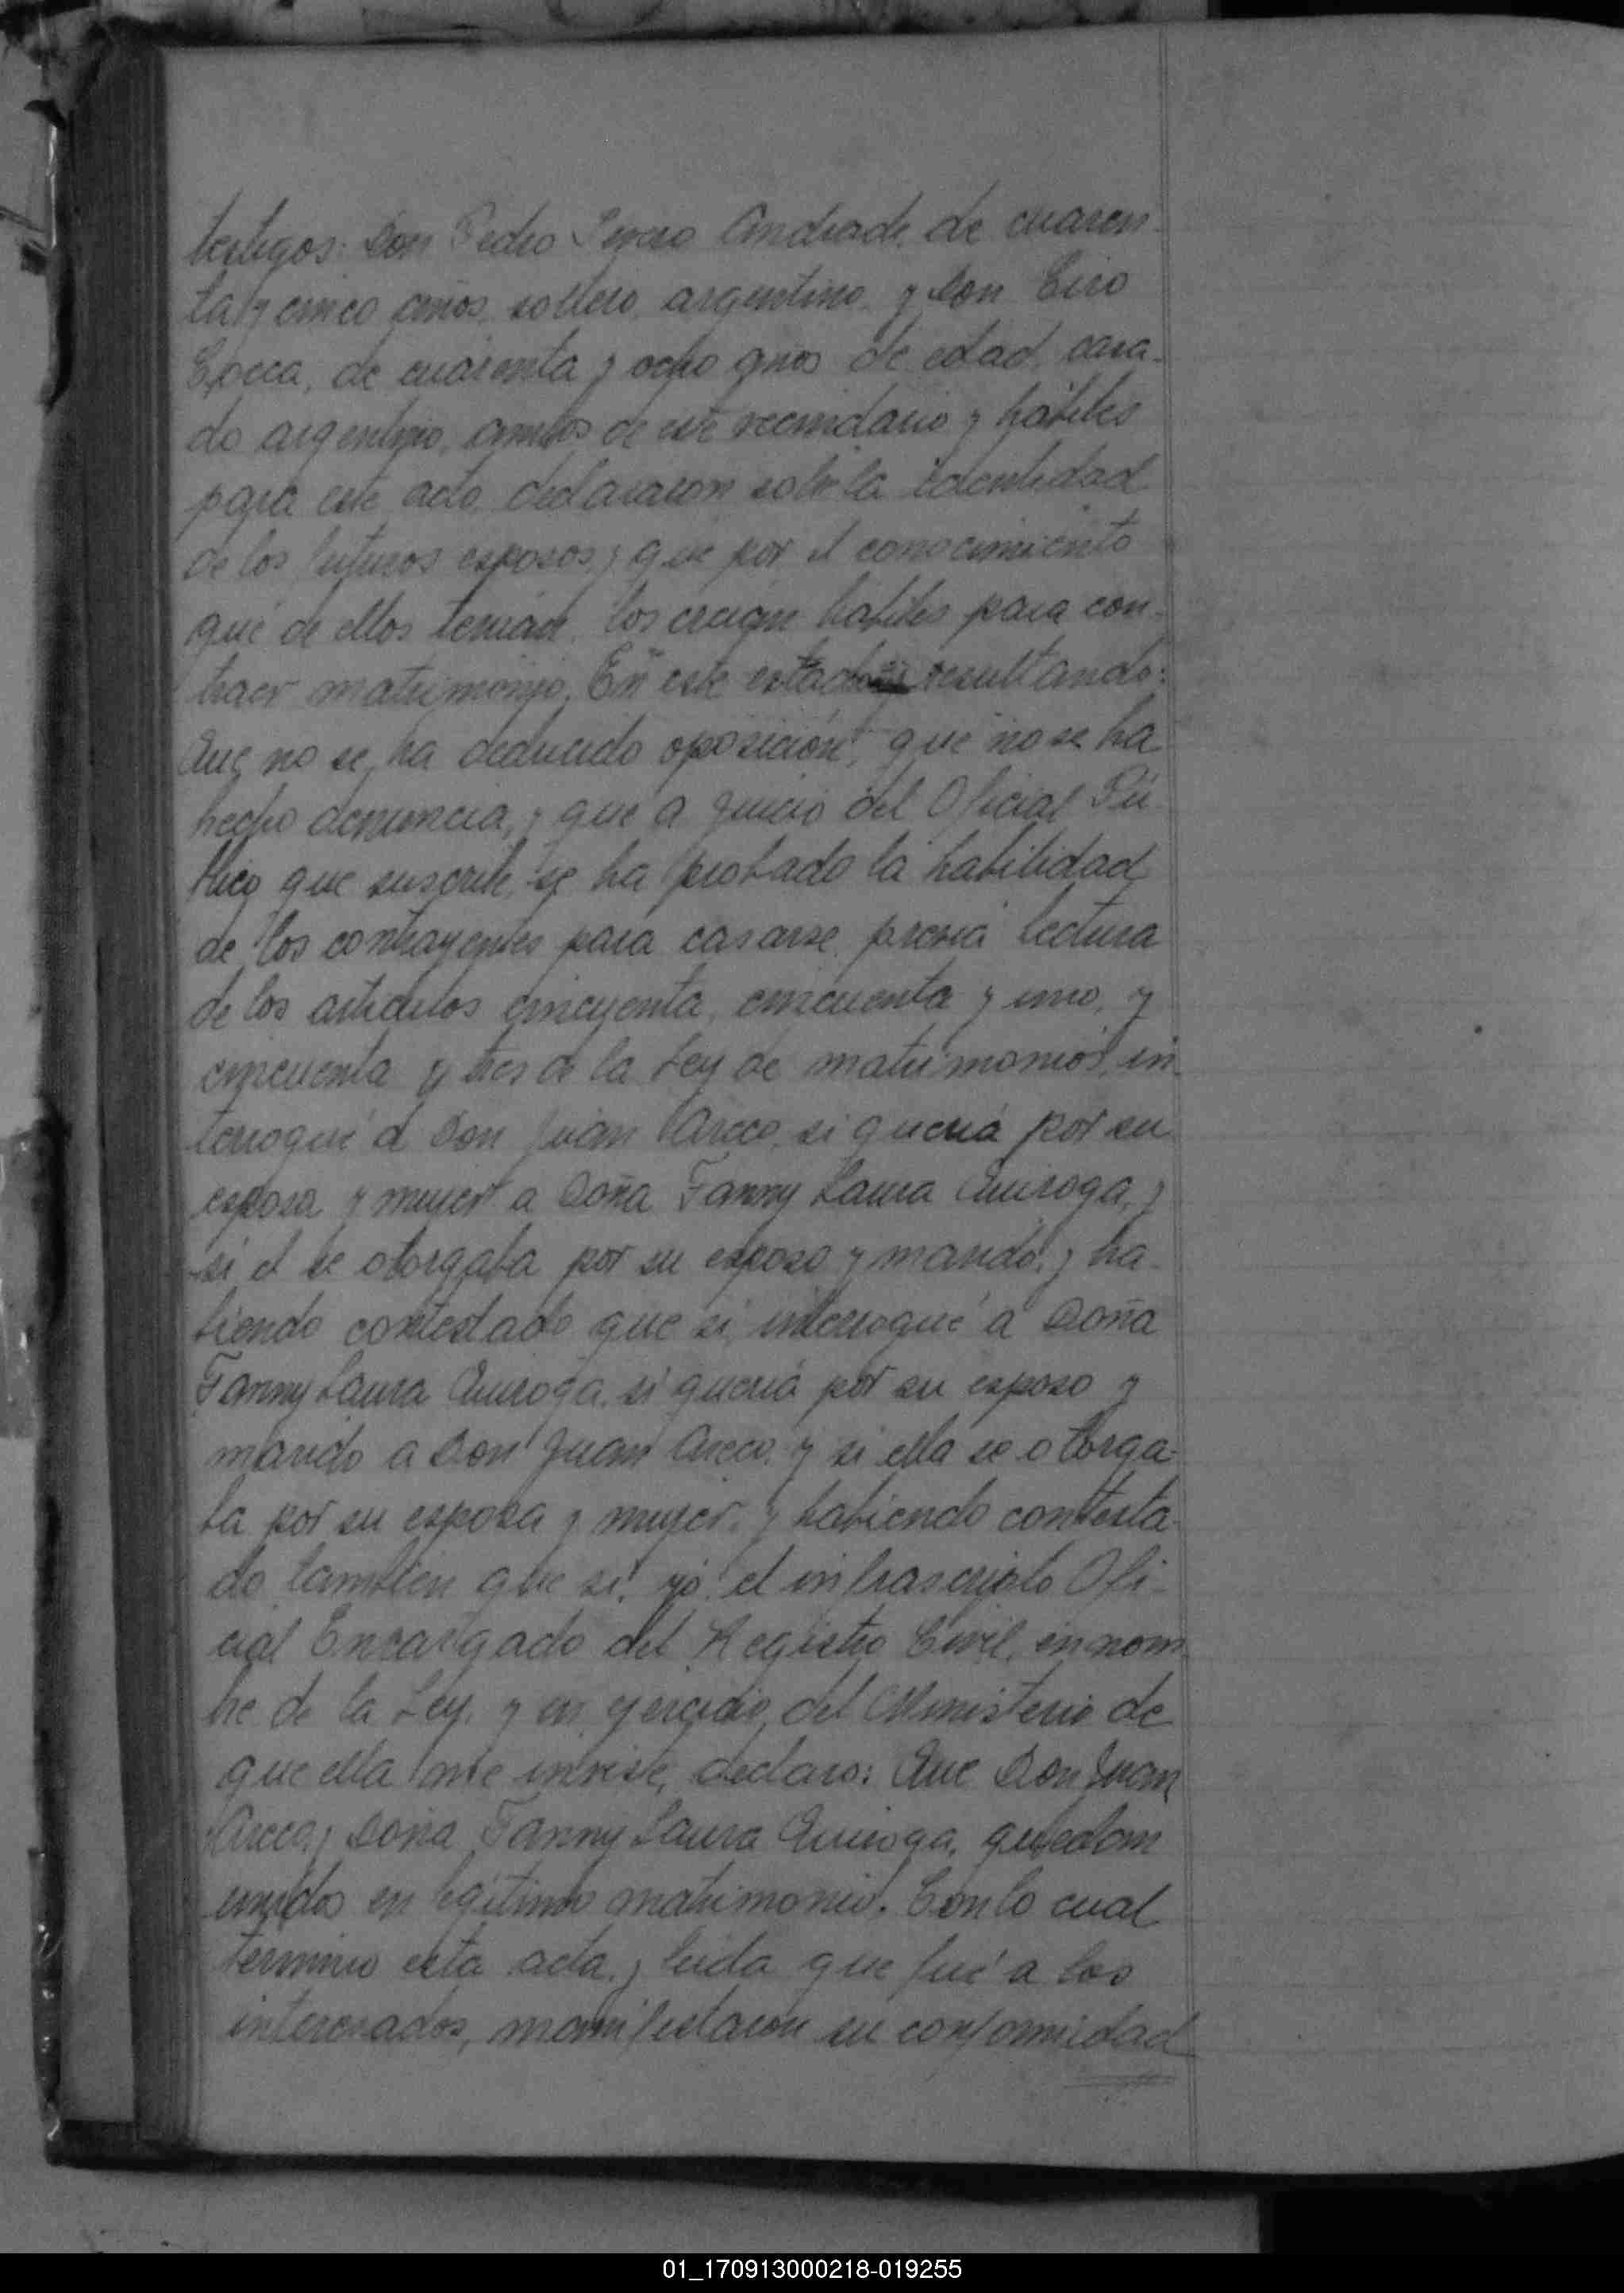 testigos: Don Pedro Andrade, de cuaren-
ta y cinco años, soltero, argentino, y Don Ciro
de cuarenta y ocho años de edad, casa-
do argentino, ambos de este vecindario y hábiles
para este acto, declararon sobre la identidad
de los futuros esposos, y que por el conocimiento
que de ellos tenían, los creían hábiles para con-
traer matrimonio. En este estado y resultando:
Que no se ha deducido oposición, que no se ha
hecho denuncia, y que a juicio del Oficial Pú-
blico que suscribe, se ha probado la habilidad
de los contrayentes para casarse, previa lectura
de los artículos cincuenta, cincuenta y uno, y
cincuenta y tres de la Ley de matrimonios, in-
terrogué á Don Juan Areco, si quería por su
esposa y mujer a Doña Fanny Laura Quiroga, y
si el se otorgaba por su esposo y marido, y ha-
biendo contestado que si, interrogué a Doña
Fanny Laura Quiroga, si quería por su esposo y
marido a Don Juan Areco, y si ella se otorga-
ba por su esposa y mujer, y habiendo contesta-
do también que si, yo el infrascripto Ofi-
cial Encargado del Registro Civil, en nom-
bre de la Ley, y en ejercicio del Ministerio de
que ella me inviste, declaro: Que Don Juan
Areco y Doña Fanny Laura Quiroga, quedan
unidos en legítimo matrimonio. Con lo cual
termino esta acta, y leida que fué a los
interesados, manifestaron su conformidad
01_170913000218-019255